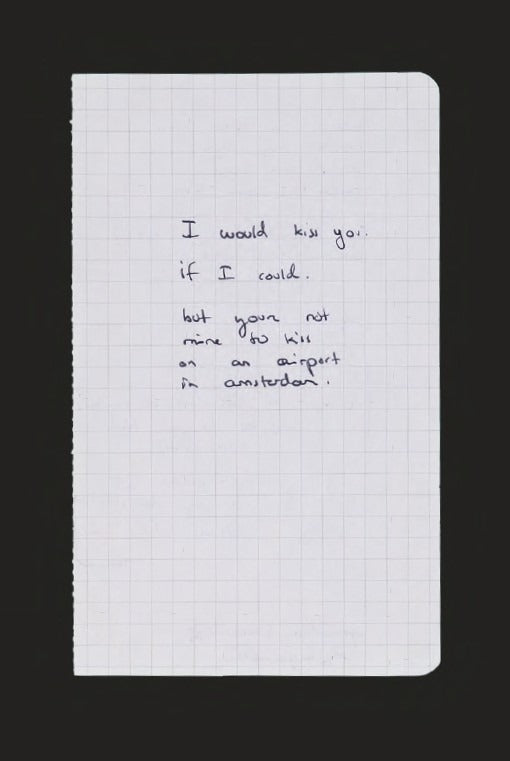 I would kiss you.
if I could.
but your not
mine to kiss
on an airport
in amsterdam.